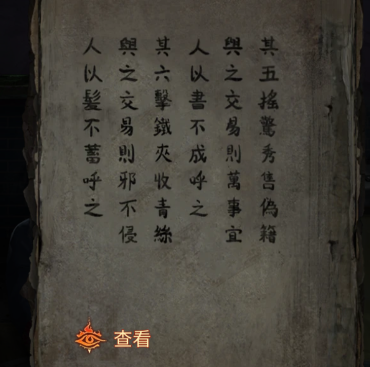 其五搖驚秀售偽籍
與之交易則萬事宜
人以書不成呼之
其六擊鐵夾收青絲
與之交易則邪不侵
人以髮不蓄呼之
查看